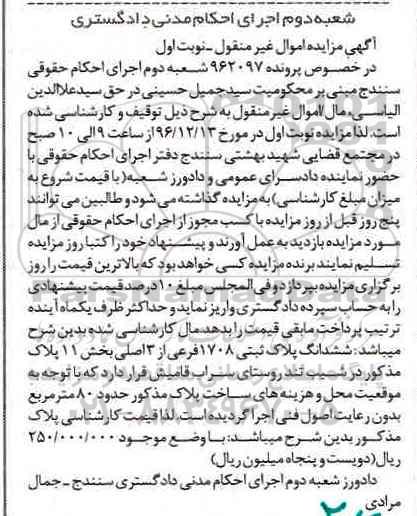 شعبه دوم اجرای احکام مدنی دادگستری
آگهی مزایده اموال غیر منقول ـ نوبت اول
در خصوص پرونده ۹۶۲۰۹۷ شعبه دوم اجرای احکام حقوقی
سنندج مبنی بر محکومیت سید جمیل حسینی در حق سید علاالدین
الیاسی، مال /اموال غیر منقول به شرح ذیل توقیف و کارشناسی شده
است. لذا مزایده نوبت اول در مورخ ۹۶/۱۲/۱۳ از ساعت ۹ الی ۱۰ صبح
در مجتمع قضایی شهید بهشتی سنندج دفتر اجرای احکام حقوقی با
حضور نماینده دادسرای عمومی و دادورز شعبه( با قیمت شروع به
میزان مبلغ کارشناسی) به مزایده گذاشته می شود و طالبین می توانند
پنج روز قبل از روز مزایده با کسب مجوز از اجرای احکام حقوقی از مال
مورد مزایده بازدید به عمل آورند و پیشنهاد خود را کتبا روز مزایده
تسلیم نمایند برنده مزایده کسی خواهد بود که بالاترین قیمت را روز
برگزاری مزایده بپردازد و فی المجلس مبلغ ۱۰ درصد قیمت پیشنهادی
را به حساب سپرده دادگستری واریز نماید و حداکثر ظرف یکماه آینده
ترتیب پرداخت مابقی قیمت را بدهد. مال کارشناسی شده بدین شرح
میباشد: ششدانگ پلاک ثبتی ۱۷۰۸ فرعی از ۳ اصلی بخش ۱۱ پلاک
مذکور در شیب تند روستای سراب قامیش قرار دارد که با توجه به
موقعیت محل و هزینه های ساخت پلاک مذکور حدود ۸۰ متر مربع
بدون رعایت اصول فنی اجرا گردیده است. لذا قیمت کارشناسی پلاک
مذکور بدین شرح میباشد: با وضع موجود ۲۵۰/۰۰۰/۰۰۰
ریال (دویست و پنجاه میلیون ریال)
دادورز شعبه دوم اجرای احکام مدنی دادگستری سنندج ـ جمال
مرادی